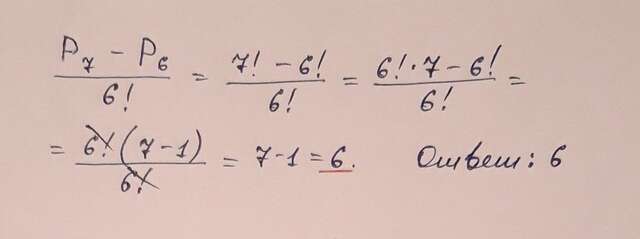 (P₇ − P₆)/6! = (7! − 6!)/6! = (6!·7 − 6!)/6! =
= 6!(7−1)/6! = 7−1 = 6. Ответ: 6